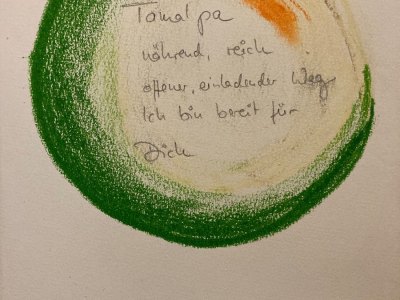 Tamalpa
nährend, reich
offener, einladender Weg
Ich bin bereit für
Dich